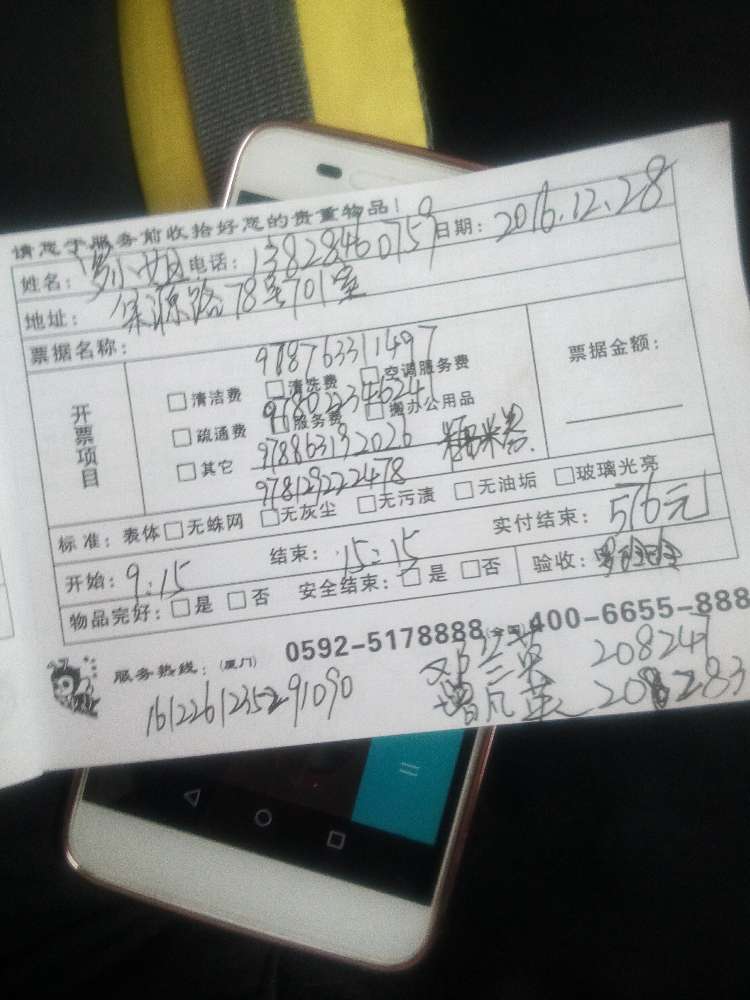 请您于服务前收拾好您的贵重物品！
姓名： 罗小姐 电话： 13828460759 日期： 2016.12.28
地址： 路78号701室
票据名称：
978763311497
开票项目
□清洁费 □清洗费 □空调服务费
票据金额：
978022346241
□疏通费 □服务费 □搬办公用品
□其它 978863192026
978129222478
标准：表体 □无蛛网 □无灰尘 □无污渍 □无油垢 □玻璃光亮
开始： 9:15 结束： 15:15 实付结束： 576元
物品完好： □是 □否 安全结束： □是 □否 验收：
服务热线：(厦门) 0592-5178888 (全国) 400-6655-888
邓兰英 208247
1612261235291090 208283